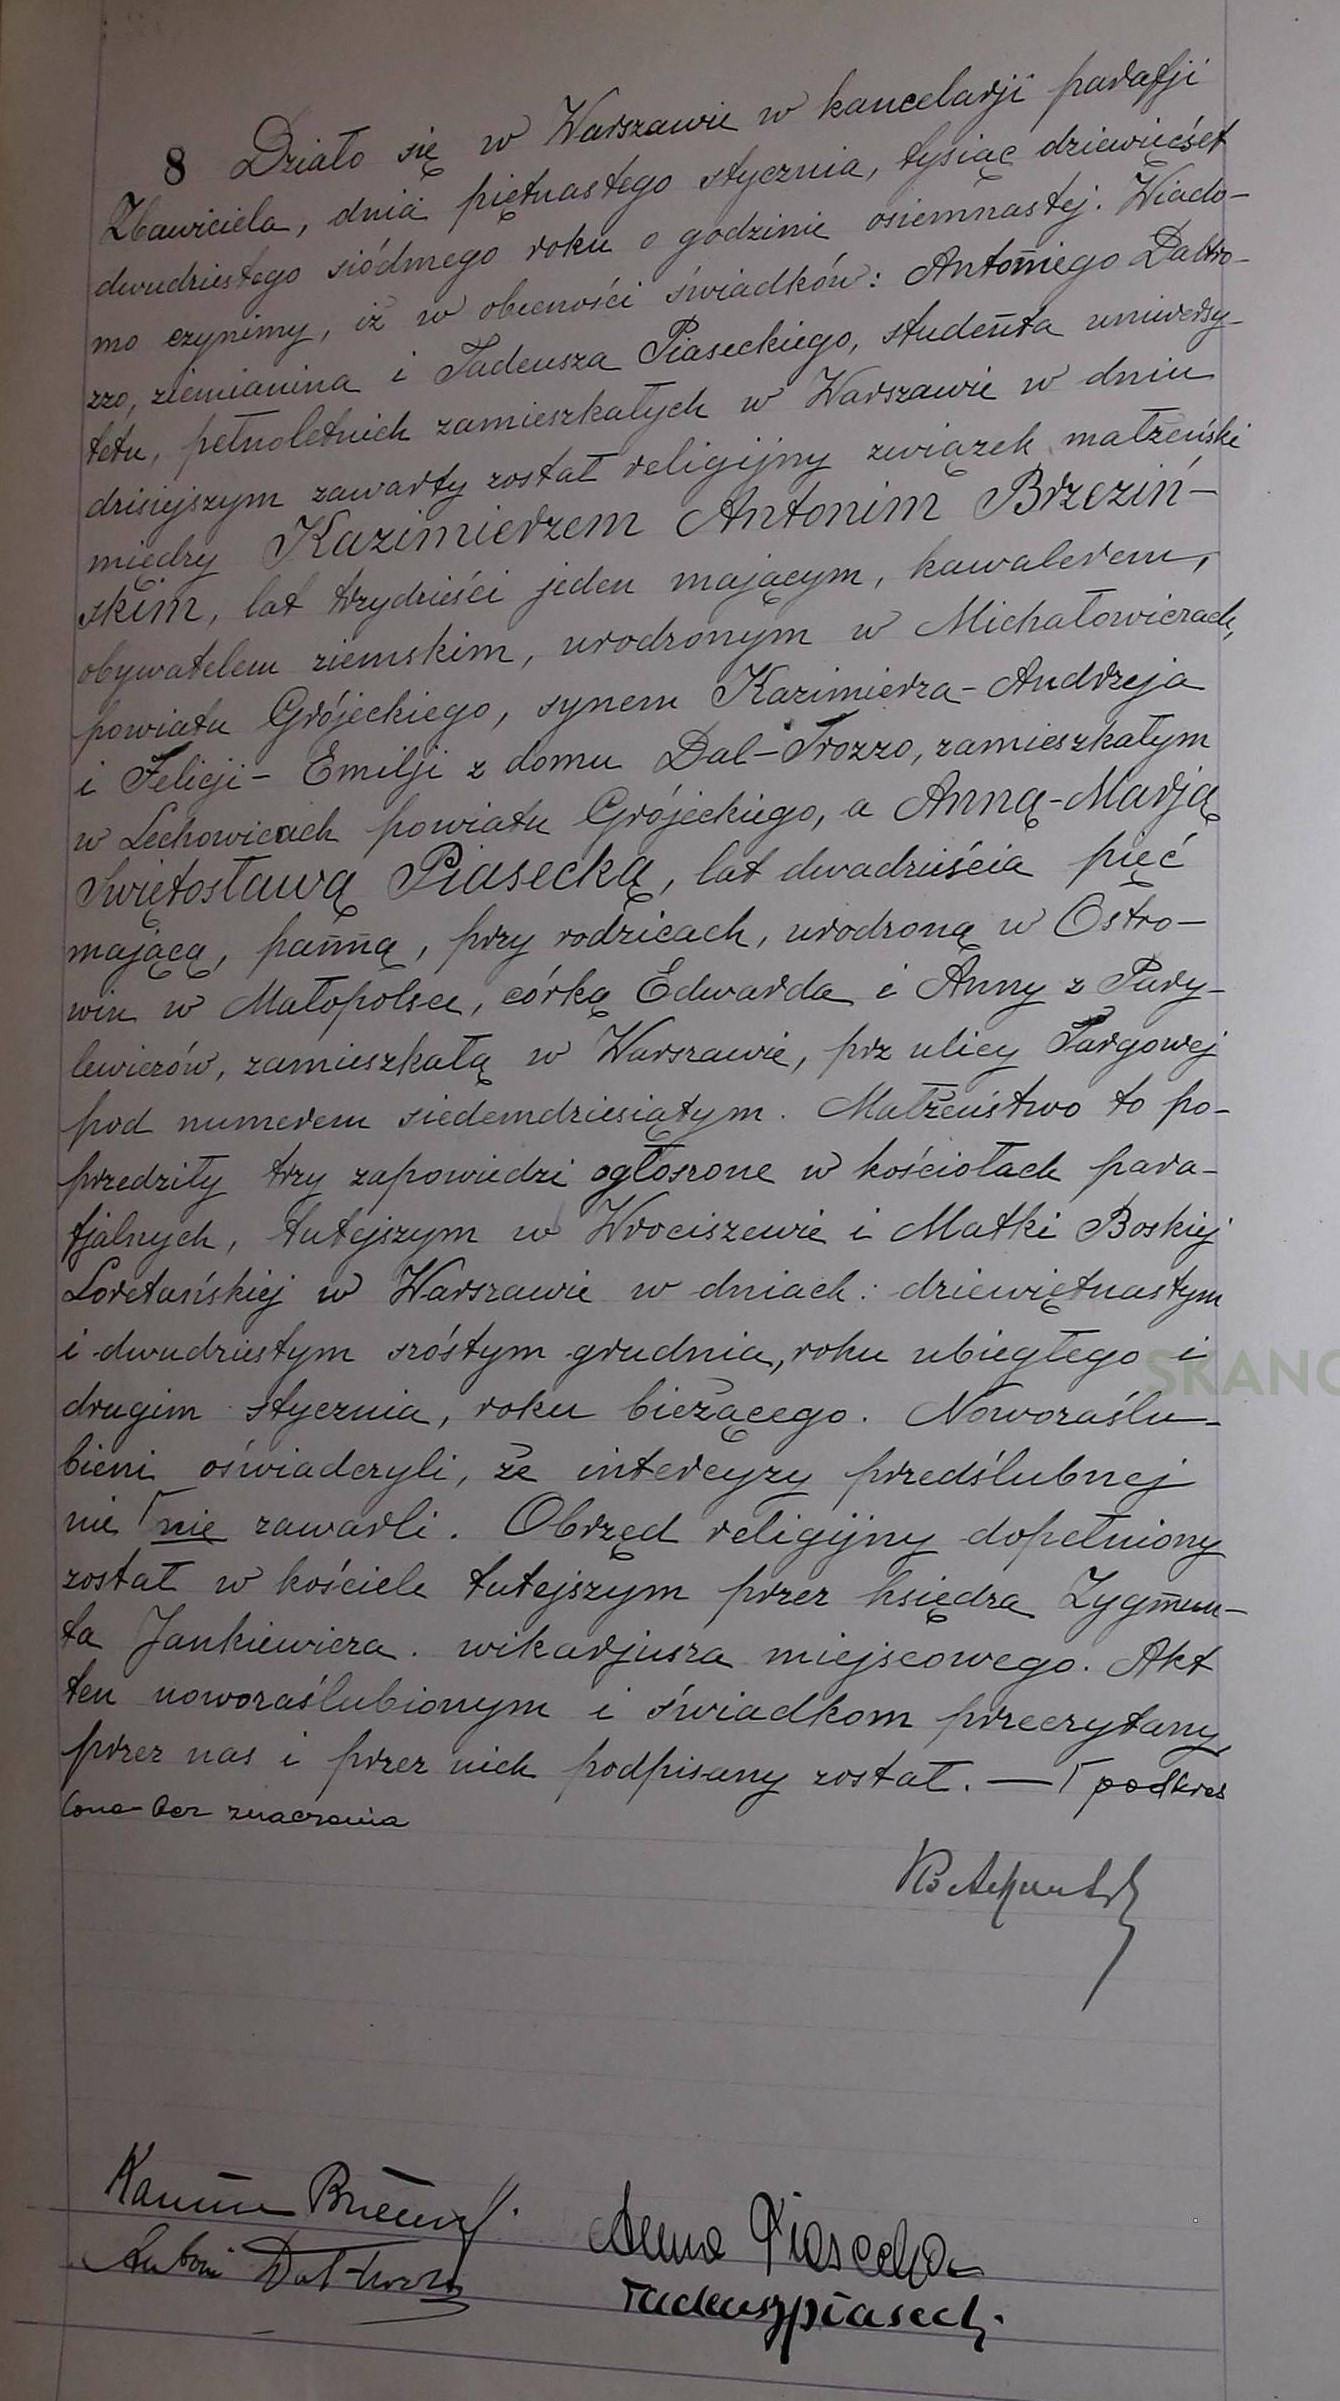 8 Działo się w Warszawie w kancelarji parafji
Zbawiciela, dnia piętnastego stycznia, tysiąc dziewięćset
dwudziestego siódmego roku o godzinie osiemnastej. Wiado-
mo czynimy, iż w obecności świadków: Antoniego Daltro-
zzo, ziemianina i Tadeusza Piaseckiego, studenta uniwersy-
tetu, pełnoletnich zamieszkałych w Warszawie w dniu
dzisiejszym zawarty został religijny związek małżeński
między Kazimierzem Antonim Brzeziń-
skim, lat trzydzieści jeden mającym, kawalerem,
obywatelem ziemskim, urodzonym w Michałowicach,
powiatu Grójeckiego, synem Kazimierza-Andrzeja
i Felicji-Emilji z domu Dal-Trozzo, zamieszkałym
w Lechowicach powiatu Grójeckiego, a Anną-Marją
Świętosławą Piasecką, lat dwadzieścia pięć
mającą, panną, przy rodzicach, urodzoną w Ostro-
wiu w Małopolsce, córką Edwarda i Anny z Pary-
lewiczów, zamieszkałą w Warszawie, prz ulicy Targowej
pod numerem siedemdziesiątym. Małżeństwo to po-
przedziły trzy zapowiedzi ogłoszone w kościołach para-
fjalnych, tutejszym w Wrociszewie i Matki Boskiej
Loretańskiej w Warszawie w dniach: dziewiętnastym
i dwudziestym szóstym grudnia, roku ubiegłego i
drugim stycznia, roku bieżącego. Nowozaślu-
bieni oświadczyli, że intercyzy przedślubnej
nie Γ nie zawarli. Obrzęd religijny dopełniony
został w kościele tutejszym przez księdza Zygmun-
ta Jankiewicza. wikarjusza miejscowego. Akt
ten nowozaślubionym i świadkom przeczytany
przez nas i przez nich podpisany został. — Γ podkreś
lone bez znaczenia
Anna Piasecka
Antoni Dal-Trozzo
Tadeusz Piasecki